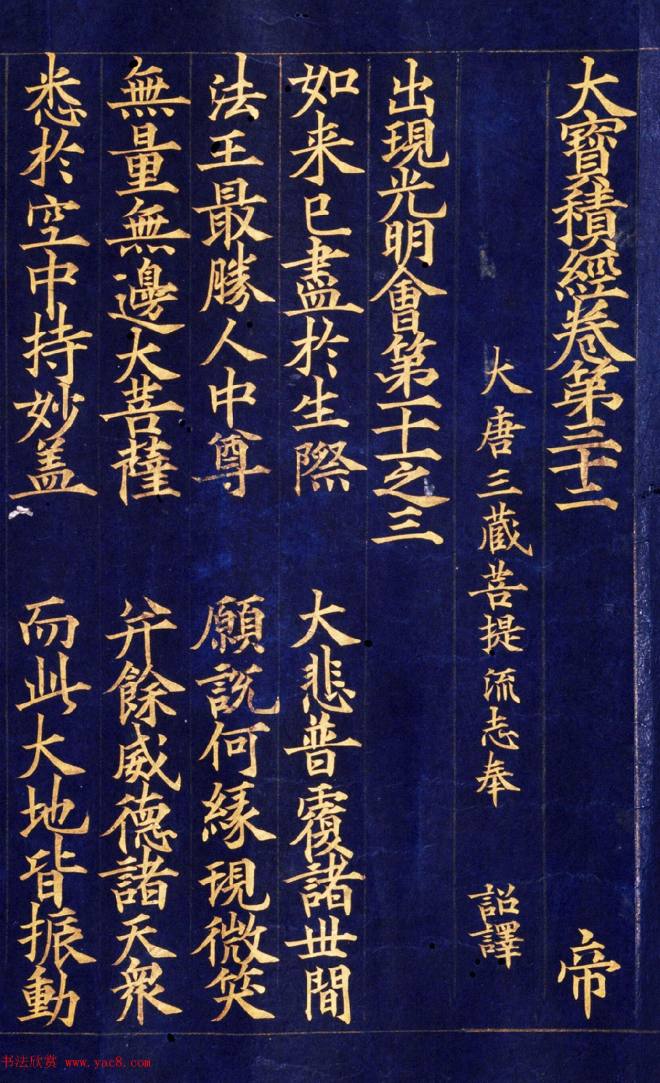 大寳積經卷第三十二 帝
大唐三藏菩提流志奉 詔譯
出現光明會第十一之三
如来已盡於生際 大悲普覆諸世間
法王最勝人中尊 願説何縁現微笑
無量無邊大菩薩 并餘威德諸天衆
悉於空中持妙盖 而此大地皆振動
书法欣赏 www.yac8.com